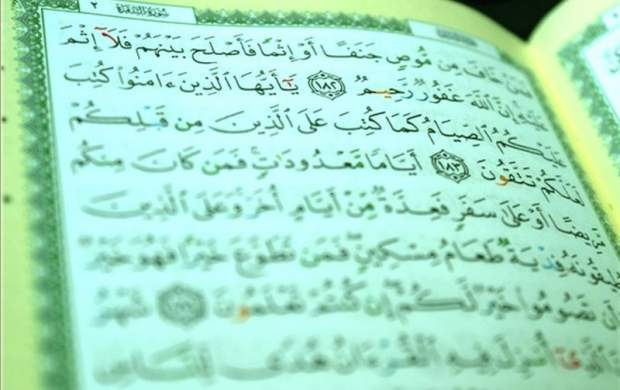 سورة البقرة ٢
فمن خاف من موص جنفا أو إثما فأصلح بينهم فلا إثم
عليه إن الله غفور رحيم ١٨٢ يأيها الذين ءامنوا كتب
عليكم الصيام كما كتب على الذين من قبلكم
لعلكم تتقون ١٨٣ أياما معدودات فمن كان منكم
مريضا أو على سفر فعدة من أيام أخر وعلى الذين
يطيقونه فدية طعام مسكين فمن تطوع خيرا فهو خير
وأن تصوموا خير لكم إن كنتم تعلمون شهر
الذي أنزل فيه القرءان هدى للناس